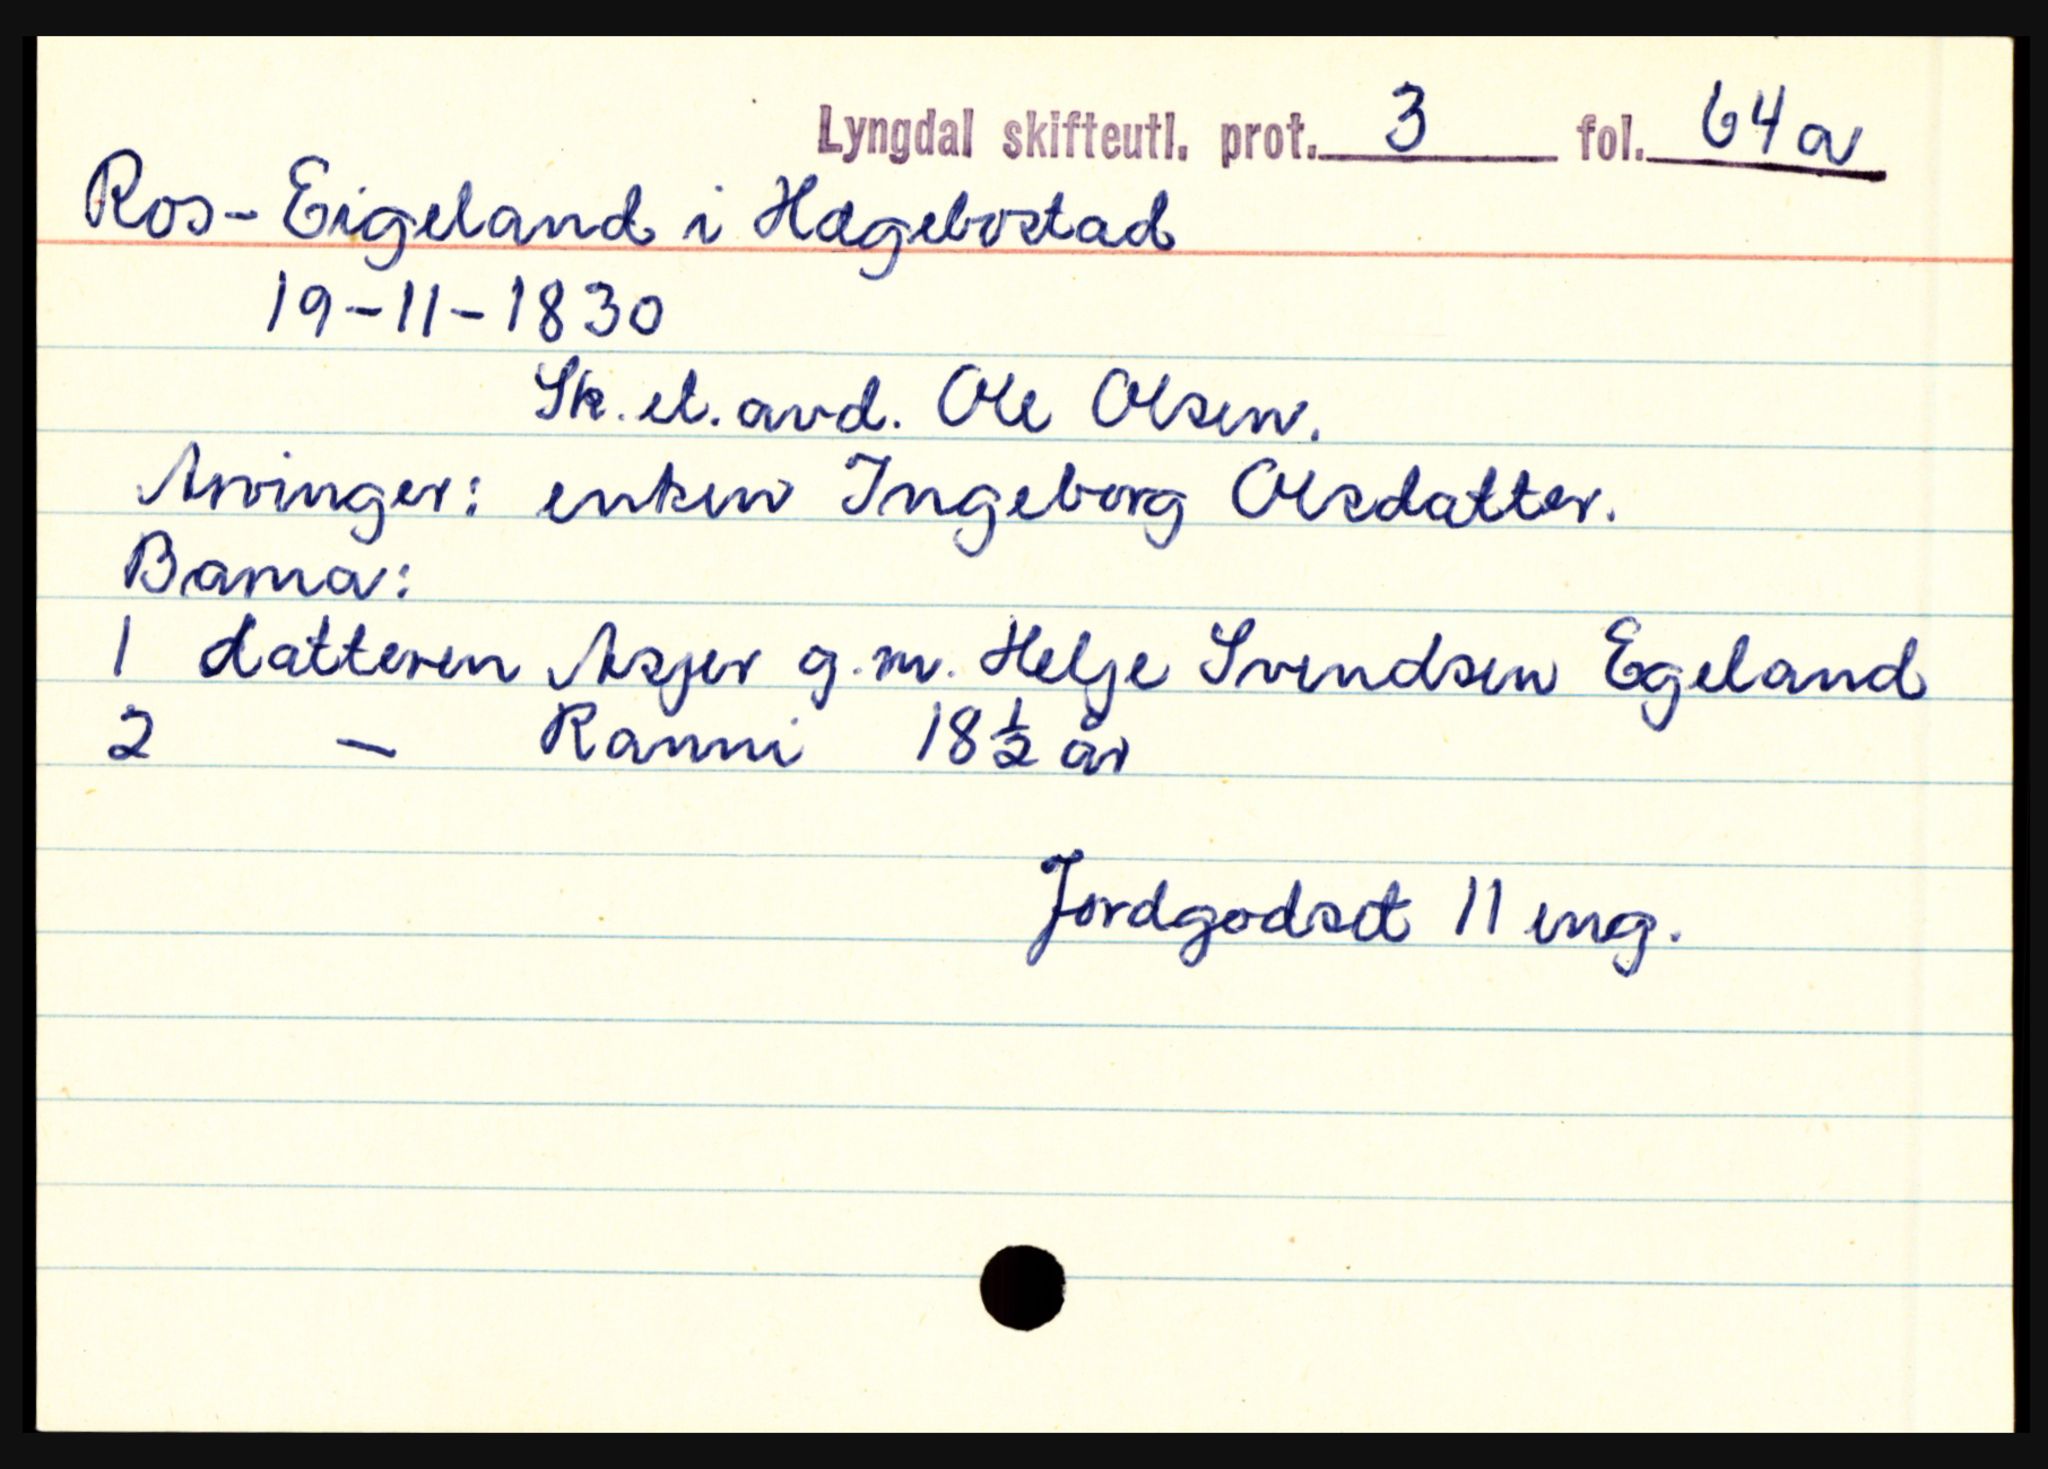 Lyngdal skifteutl. prot. 3 fol. 64a
Ros-Eigeland i Hægebostad
19-11-1830
Sk. et. avd. Ole Olsen.
Arvinger: enken Ingeborg Olsdatter.
Barna:
1 datteren Asjer g.m. Helje Svendsen Egeland
2 — Ranni 18 ½ år
Jordgodset 11 eng.